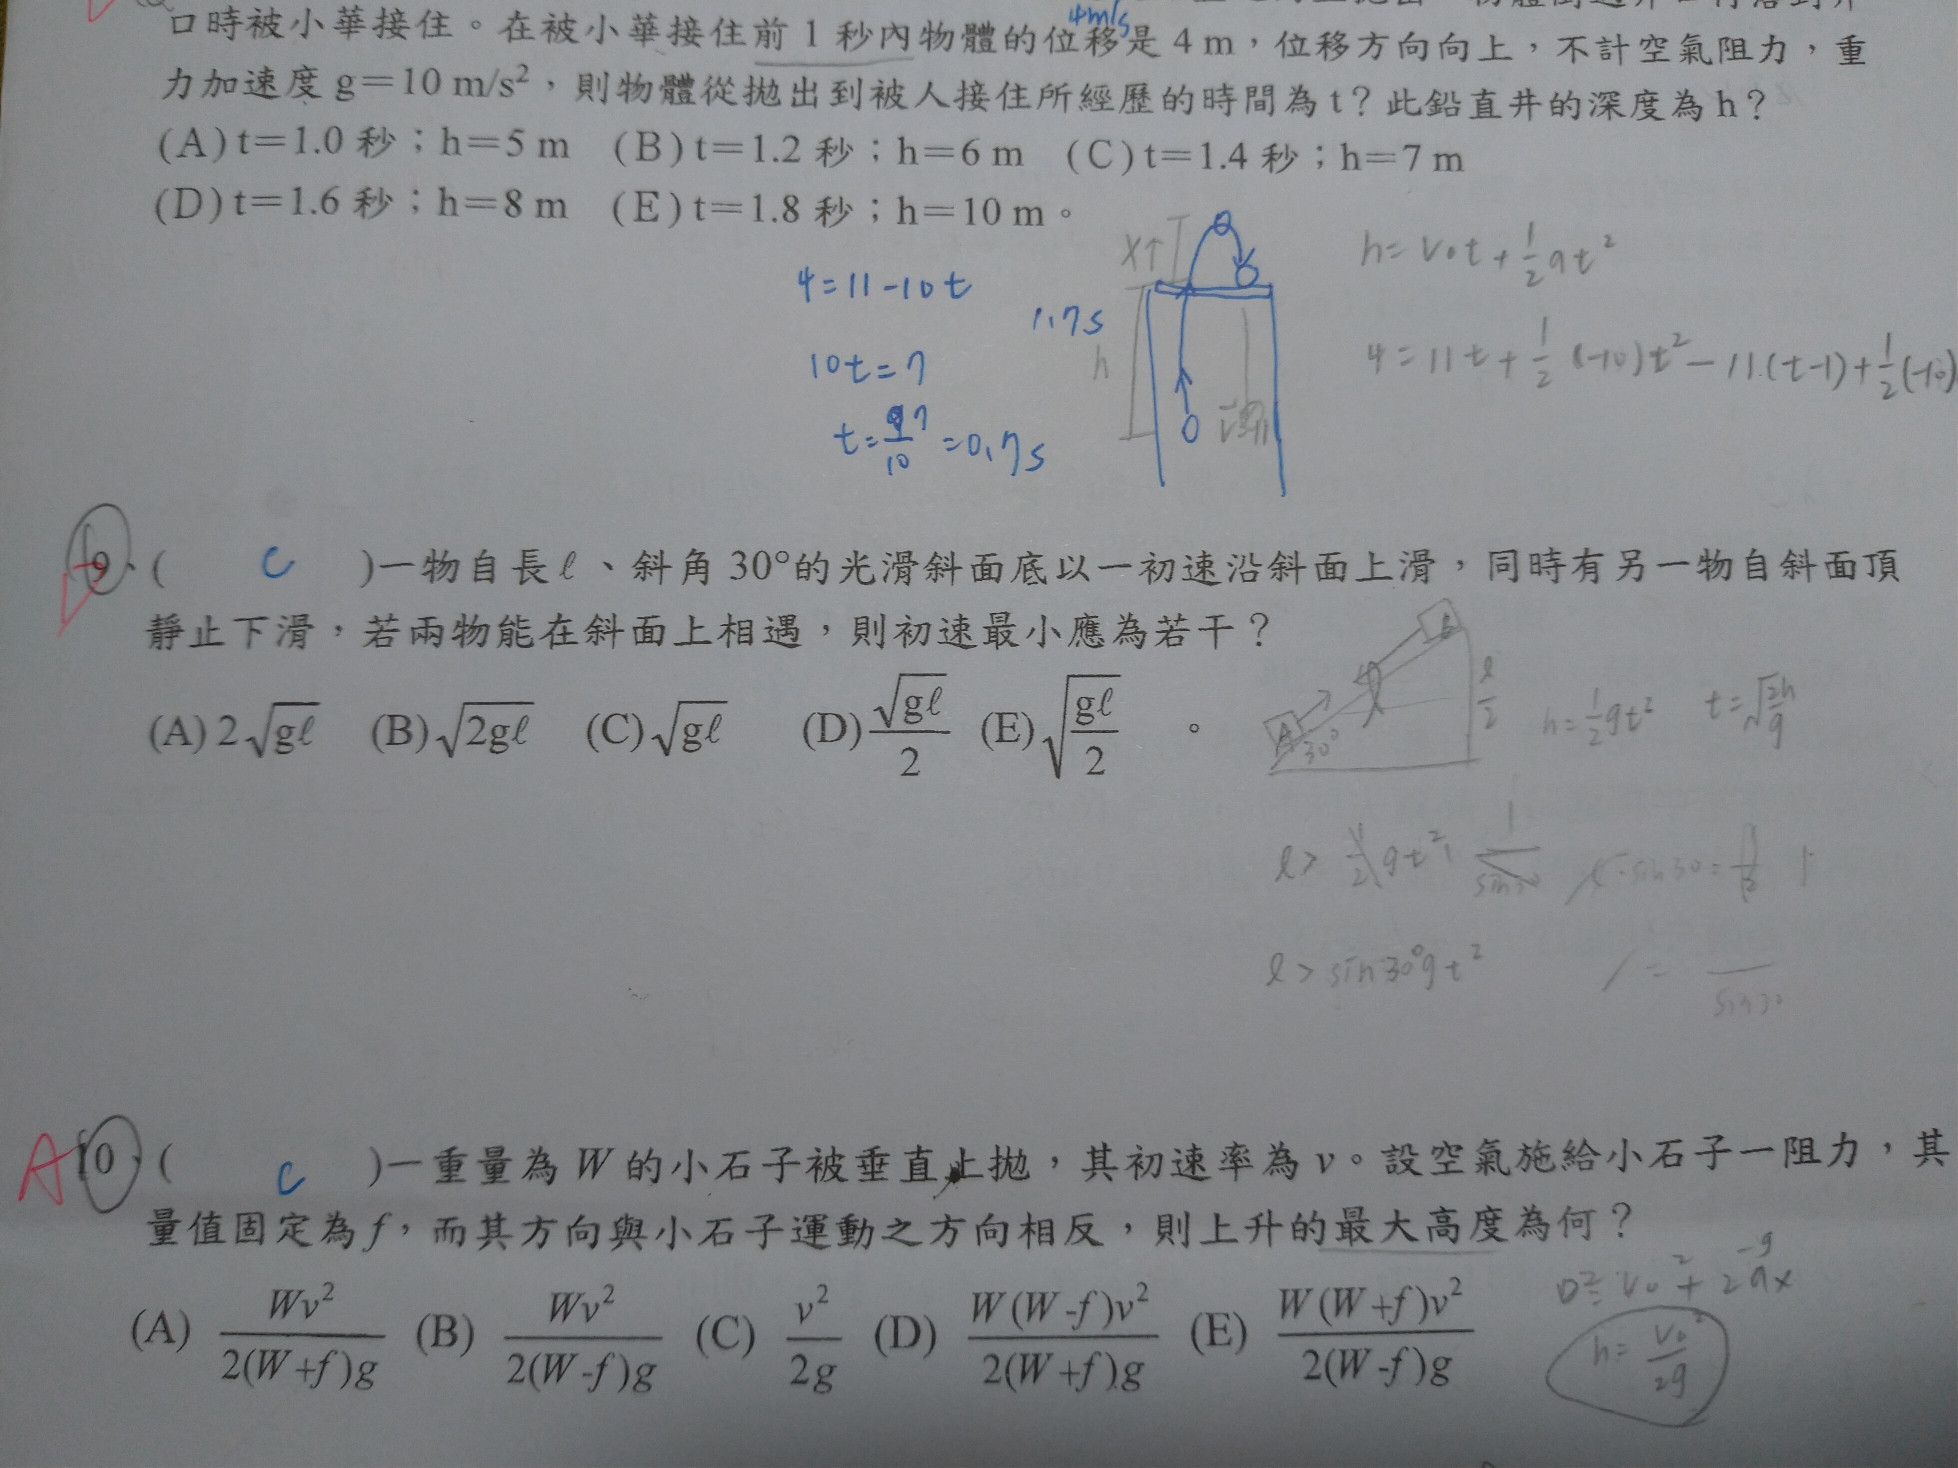 4m/s
口時被小華接住。在被小華接住前 1 秒內物體的位移是 4 m，位移方向向上，不計空氣阻力，重
力加速度 g＝10 m/s²，則物體從拋出到被人接住所經歷的時間為 t？此鉛直井的深度為 h？
(A) t＝1.0 秒；h＝5 m (B) t＝1.2 秒；h＝6 m (C) t＝1.4 秒；h＝7 m
(D) t＝1.6 秒；h＝8 m (E) t＝1.8 秒；h＝10 m。
4=11-10t
10t=7
t=7/10=0.7s
1.7s
x↑
h
h=V₀t+½gt²
4=11t+½(-10)t²-11(t-1)+½(-10)
9. ( C )一物自長ℓ、斜角 30°的光滑斜面底以一初速沿斜面上滑，同時有另一物自斜面頂
靜止下滑，若兩物能在斜面上相遇，則初速最小應為若干？
(A) 2√gℓ (B) √2gℓ (C) √gℓ (D) √gℓ/2 (E) √(gℓ/2) 。
A
30°
ℓ/2
h=½gt² t=√(2h/g)
ℓ>
ℓ>sin30°gt²
sin30
A 10. ( C )一重量為 W 的小石子被垂直上拋，其初速率為 v。設空氣施給小石子一阻力，其
量值固定為 f，而其方向與小石子運動之方向相反，則上升的最大高度為何？
(A) Wv²/2(W+f)g (B) Wv²/2(W-f)g (C) v²/2g (D) W(W-f)v²/2(W+f)g (E) W(W+f)v²/2(W-f)g
-g
0²=V₀²+2ax
h=V₀²/2g